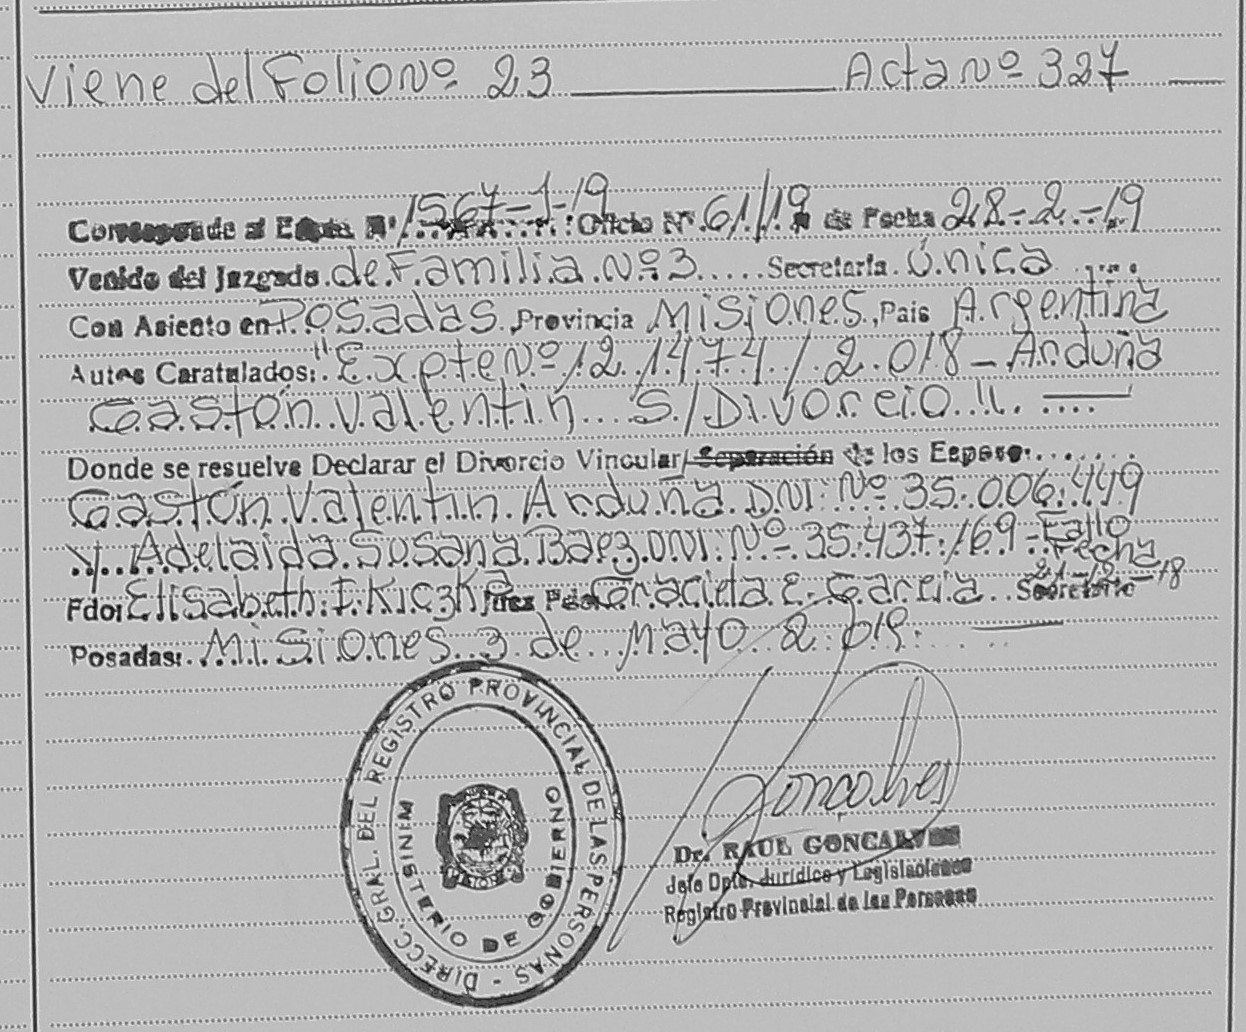 Viene del Folio Nº 23 Acta Nº 327
Corresponde al Expte. Nº 1567-1-19 Oficio Nº 61/19 de Fecha 28-2-19
Venido del Juzgado de Familia Nº 3 Secretaría Única
Con Asiento en Posadas Provincia Misiones, País Argentina
Autos Caratulados: "Expte Nº 121474/2.018 - Arduña
Gastón Valentin S/Divorcio".
Donde se resuelve Declarar el Divorcio Vincular/Separación de los Esposos
Gastón Valentin Arduña DNI: Nº 35.006.449
y Adelaida Susana Baez DNI: Nº 35.437.169 - Fallo
Fecha
21-12-18
Fdo: Elisabeth I. Kiczka Juez Fdo: Graciela E. Garcia Secretario
Posadas: Misiones 3 de Mayo 2.019.
DIRECC. GRAL. DEL REGISTRO PROVINCIAL DE LAS PERSONAS -
MINISTERIO DE GOBIERNO
Goncalves
Dr. RAUL GONCALVES
Jefe Dpto. Jurídico y Legislaciones
Registro Provincial de las Personas